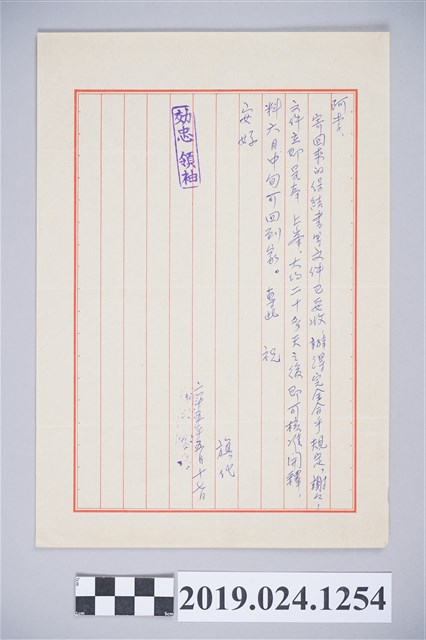 阿李：
寄回來的保結書等文件已妥收，辦得完全合乎規定，謝謝！
文件立即呈奉上峯，大約二十多天之後即可核准開釋，
料六月中旬可回到家。 專此 祝
安好
旗代
五月十七日
効忠領袖
2019.024.1254